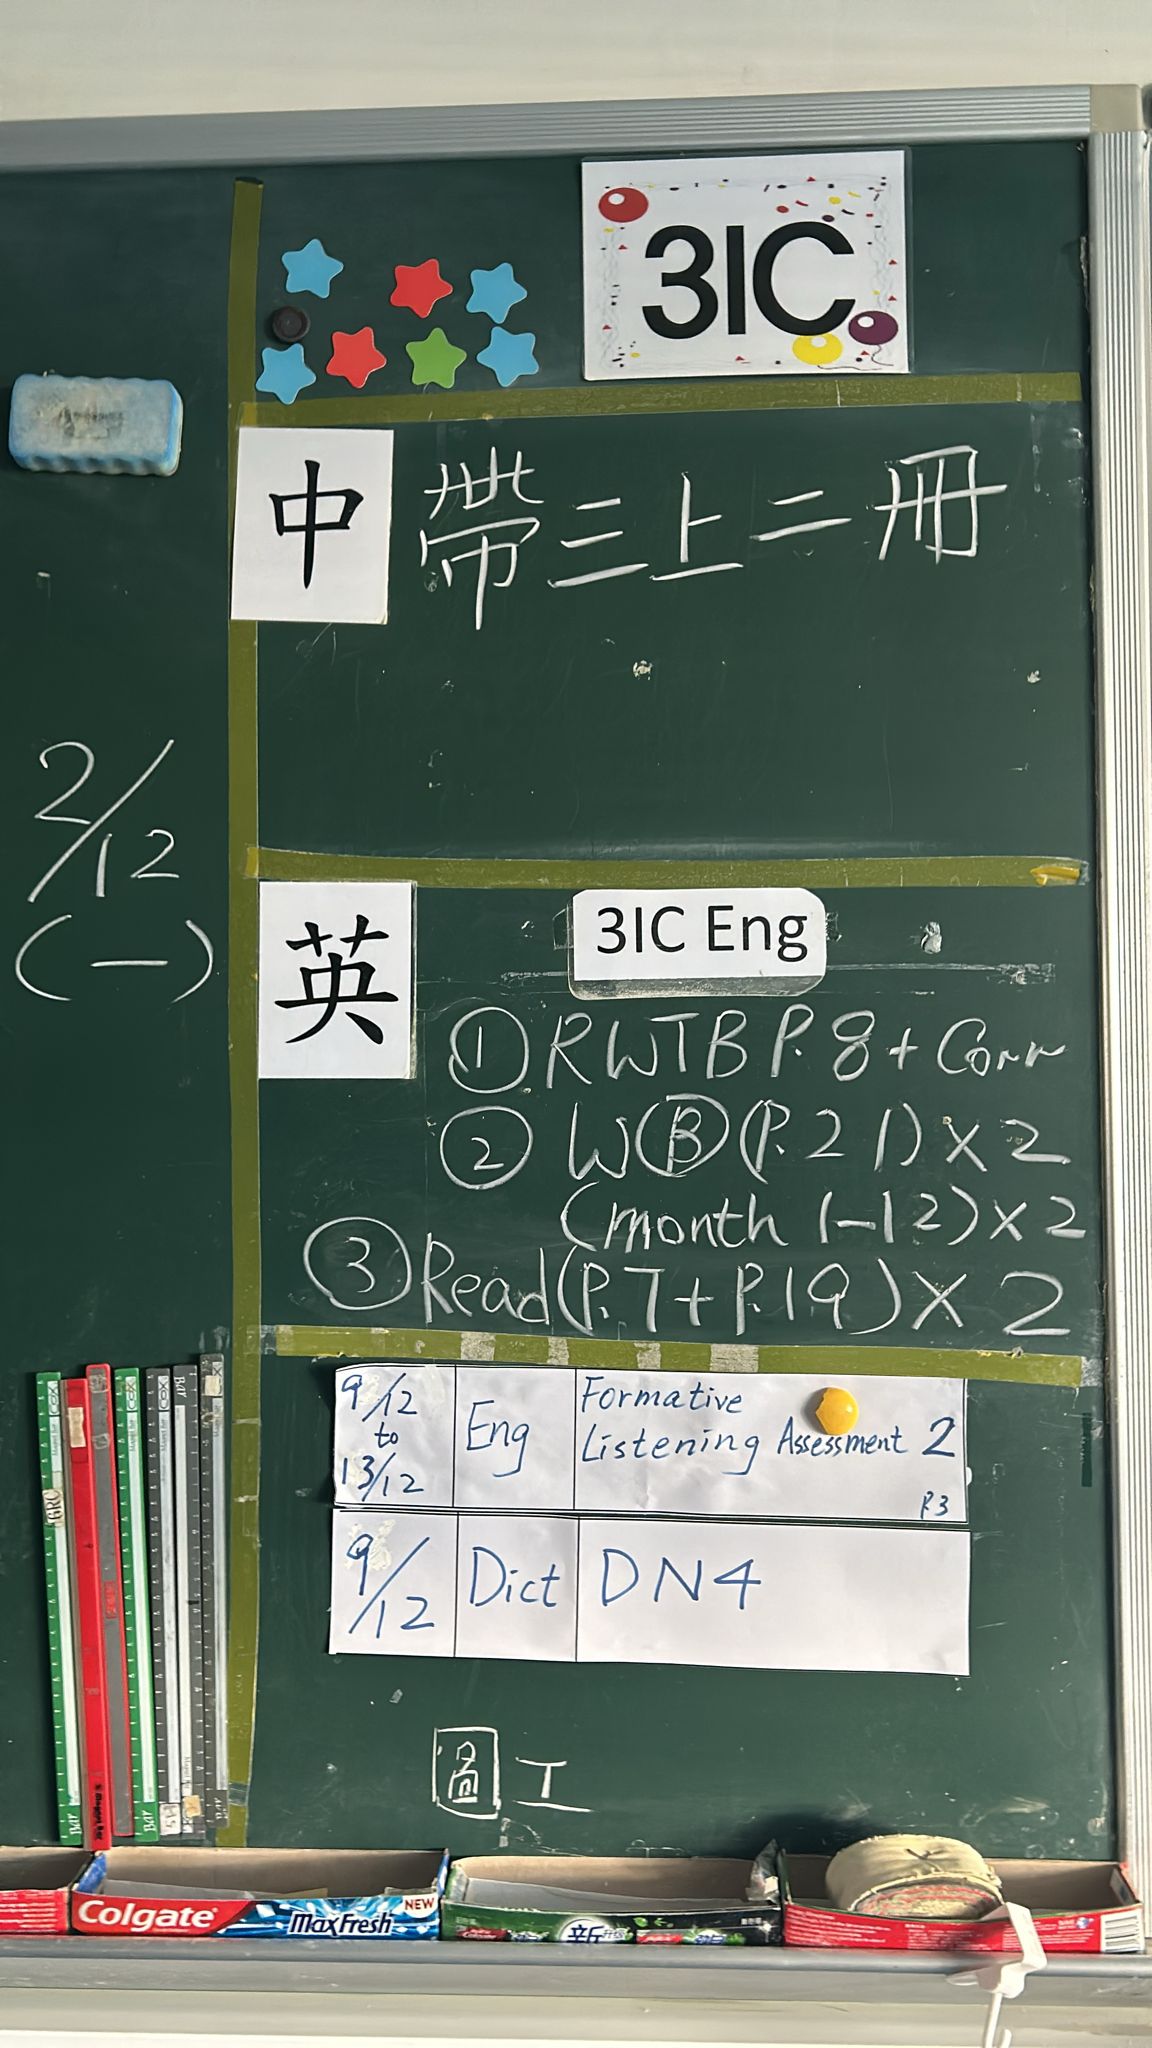 3IC
中
帶三上二冊
2/12
(一)
英
3IC Eng
① RWTB P.8 + Corr
② WⒷ(P.21)×2
(month 1-12)×2
③ Read(P.7+P.19)×2
9/12 to 13/12 Eng Formative Listening Assessment 2 P.3
9/12 Dict DN4
圖工
Colgate MaxFresh NEW
新